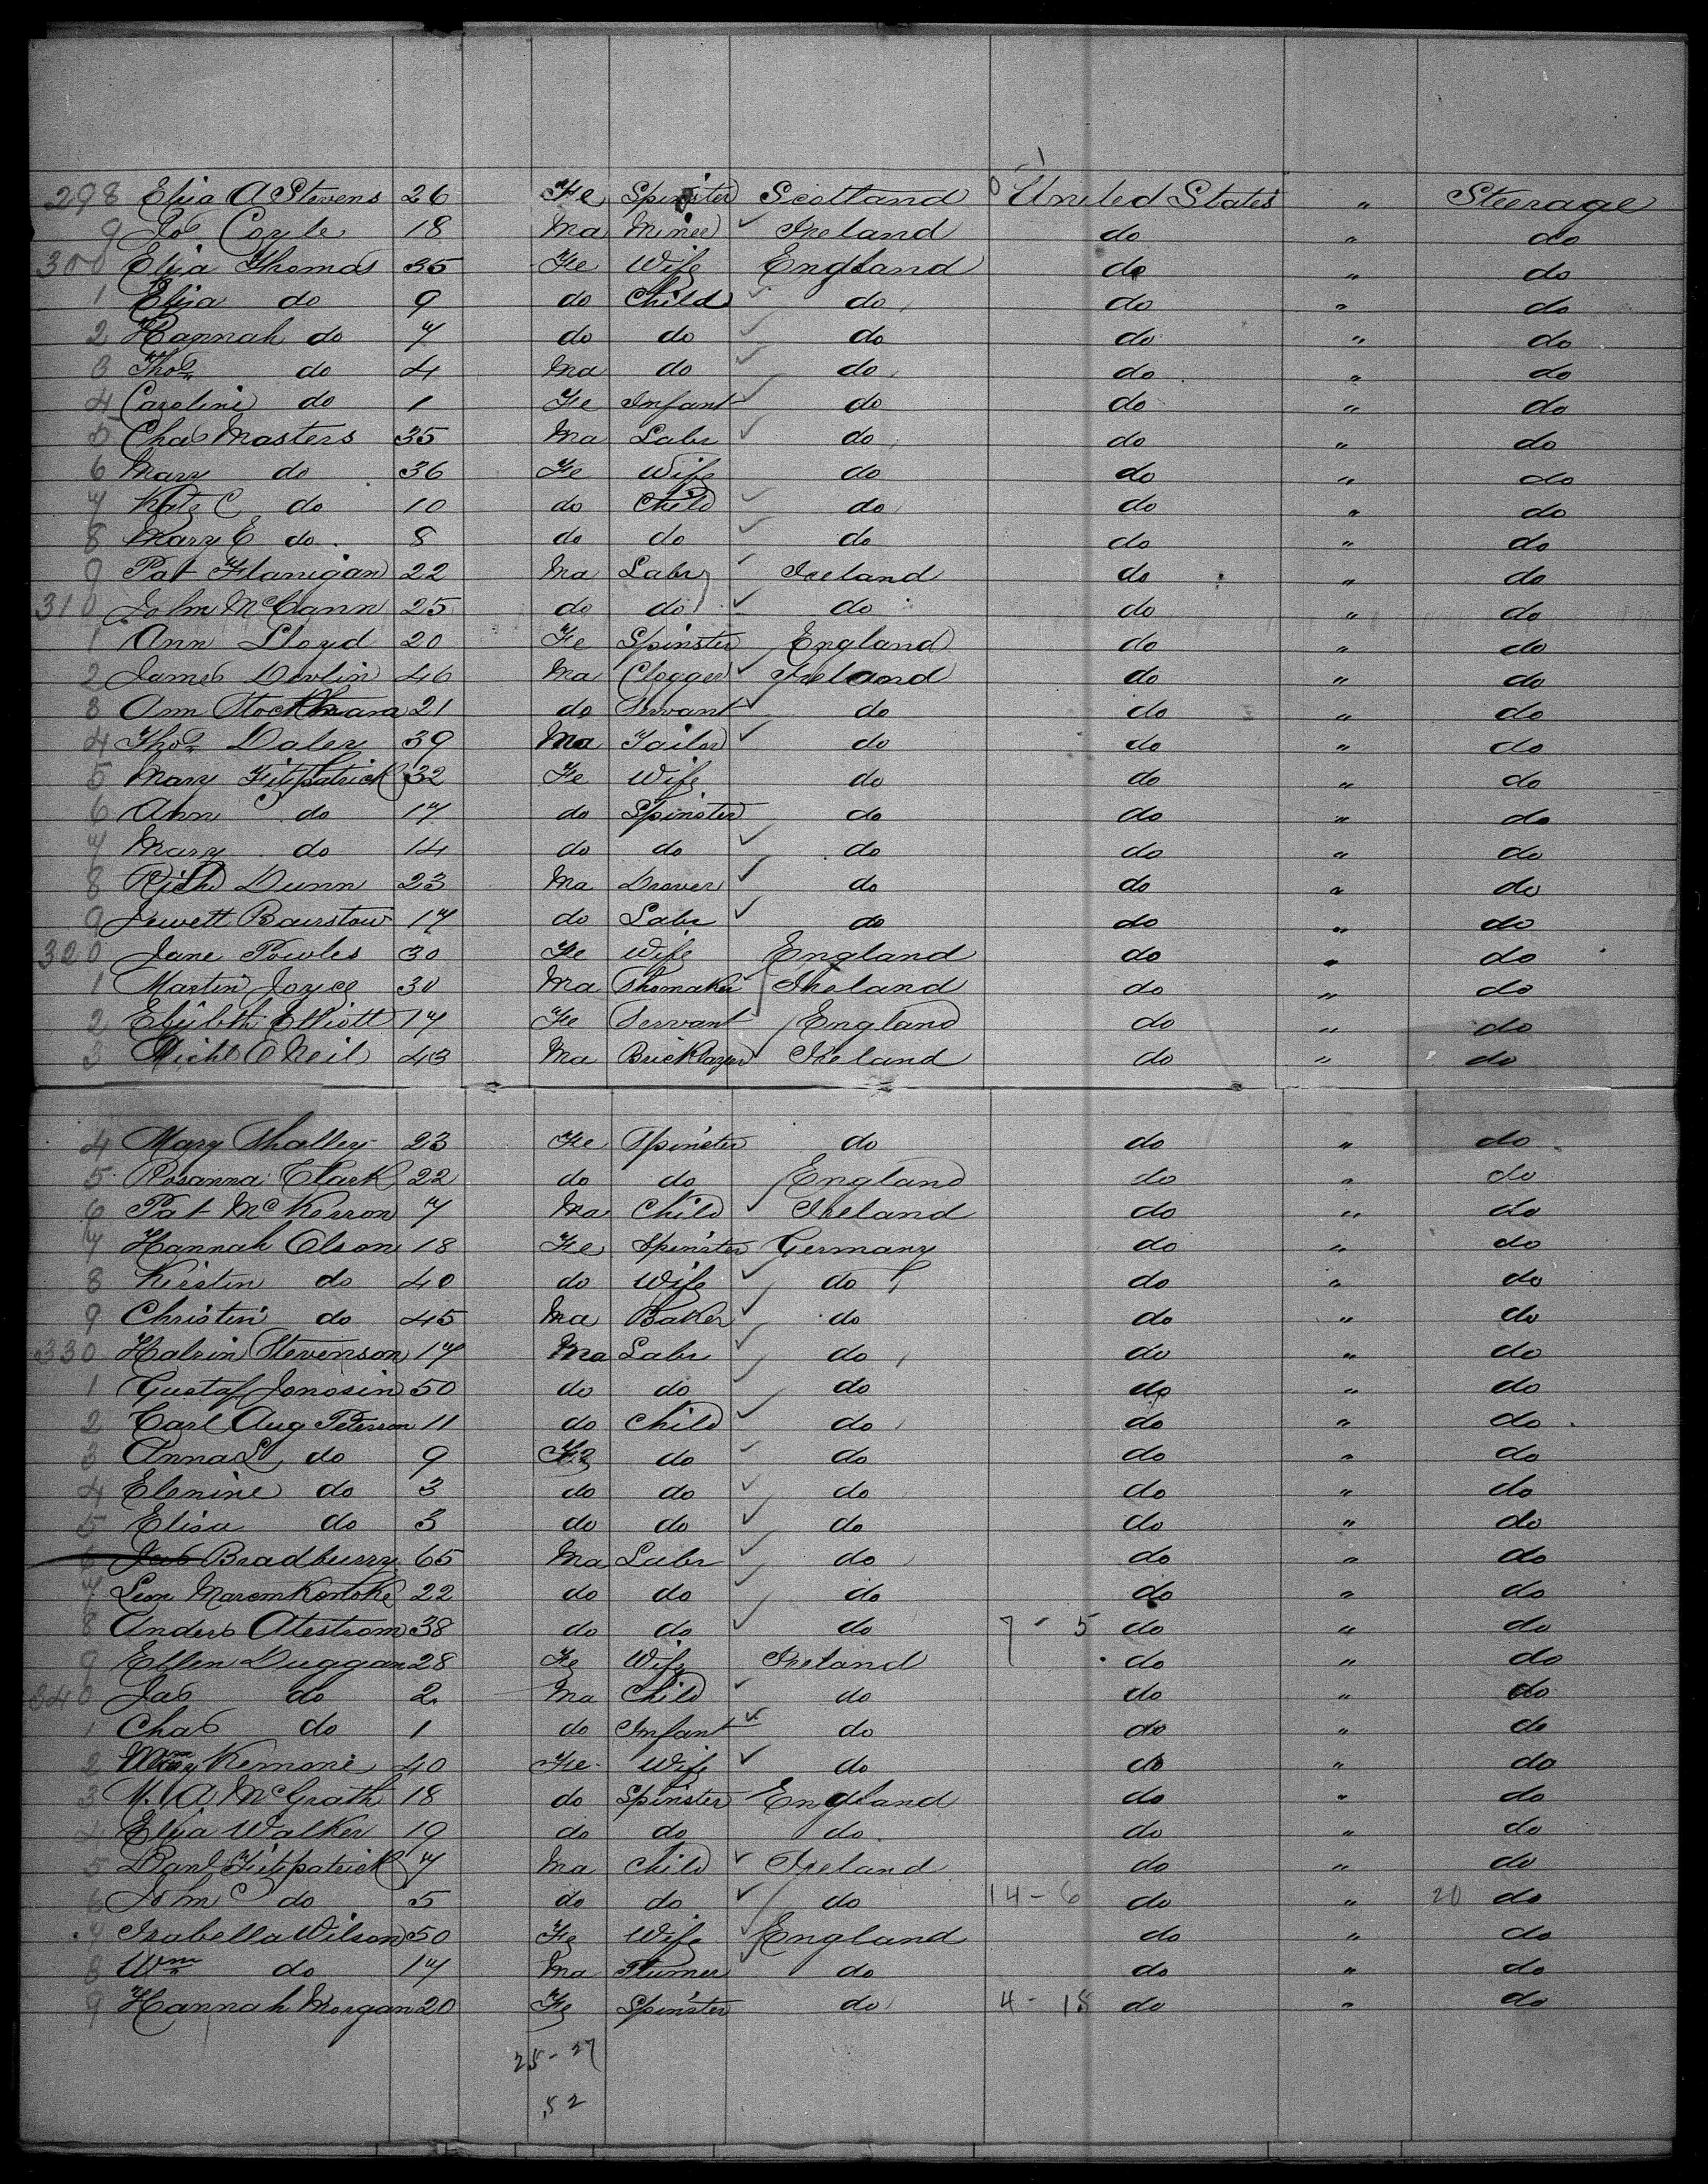 298 Eliza A Stevens 26 Fe Spinster Scotland United States " Steerage
9 Jos Coyle 18 Ma Miner Ireland do " do
300 Eliza Thomas 35 Fe Wife England do " do
1 Eliza do 9 do Child do do " do
2 Hannah do 7 do do do do " do
3 Thos do 4 Ma do do do " do
4 Caroline do 1 Fe Infant do do " do
5 Chas Masters 35 Ma Labr do do " do
6 Mary do 36 Fe Wife do do " do
7 Kate C do 10 do Child do do " do
8 Mary E do 8 do do do do " do
9 Pat Flanigan 22 Ma Labr Ireland do " do
310 John McCann 25 do do do do " do
1 Ann Lloyd 20 Fe Spinster England do " do
2 James Devlin 46 Ma Clogger Ireland do " do
3 Ann 21 do Servant do do " do
4 Thos Daley 39 Ma Tailor do do " do
5 Mary Fitzpatrick 32 Fe Wife do do " do
6 Ann do 17 do Spinster do do " do
7 Mary do 14 do do do do " do
8 Richd Dunn 23 Ma Drover do do " do
9 Jewett Bairstow 17 do Labr do do " do
320 Jane Powles 30 Fe Wife England do " do
1 Martin Joyce 30 Ma Shomaker Ireland do " do
2 Elizbth Elliott 17 Fe Servant England do " do
3 Michl O Neil 43 Ma Bricklayer Ireland do " do
4 Mary Shalley 23 Fe Spinster do do " do
5 Rosanna Clark 22 do do England do " do
6 Pat McKerron 7 Ma Child Ireland do " do
7 Hannah Olson 18 Fe Spinster Germany do " do
8 Kirstin do 40 do Wife do do " do
9 Christin do 45 Ma Baker do do " do
330 Halrin Stevenson 17 Ma Labr do do " do
1 Gustaf Jonosin 50 do do do do " do
2 Carl Aug Peterson 11 do Child do do " do
3 Anna L do 9 Fe do do do " do
4 Elenine do 3 do do do do " do
5 Elisa do 3 do do do do " do
6 Jas Bradburry 65 Ma Labr do do " do
7 Leon 22 do do do do " do
8 Anders Atestrom 38 do do do 7 - 5 do " do
9 Ellen Duggan 28 Fe Wife Ireland do " do
340 Jas do 2 Ma Child do do " do
1 Chas do 1 do Infant do do " do
2 Kemone 40 Fe Wife do do " do
3 M. A McGrath 18 do Spinster England do " do
4 Eliza Walker 19 do do do do " do
5 Danl Fitzpatrick 7 Ma Child Ireland do " do
6 John do 5 do do do 14 - 6 do " 20 do
7 Isabella Wilson 50 Fe Wife England do " do
8 Wm do 17 Ma Turner do do " do
9 Hannah Morgan 20 Fe Spinster do 4 - 18 do " do
25 - 27
52